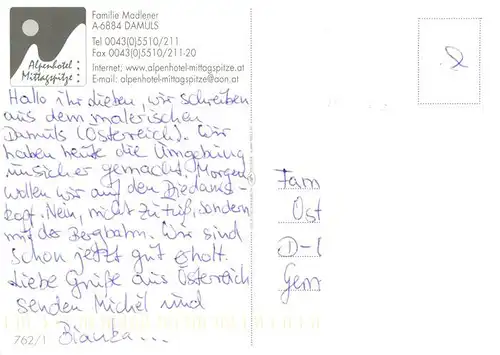 Familie Madlener
A-6884 DAMÜLS
Tel 0043(0)5510/211
Fax 0043(0)5510/211-20
Internet: www.alpenhotel-mittagspitze.at
E-mail: alpenhotel-mittagspitze@aon.at
Alpenhotel
Mittagspitze
Hallo ihr Lieben, wir schreiben
aus dem malerischen
Damüls (Österreich). Wir
haben heute die Umgebung
unsicher gemacht. Morgen
wollen wir auf den Diedams-
kopf. Nein, nicht zu Fuß, sondern
mit der Bergbahn. Wir sind
schon jetzt gut erholt.
Liebe Grüße aus Österreich
senden Michel und
Bianka...
762/1
Fam
Ost
D-
Gem